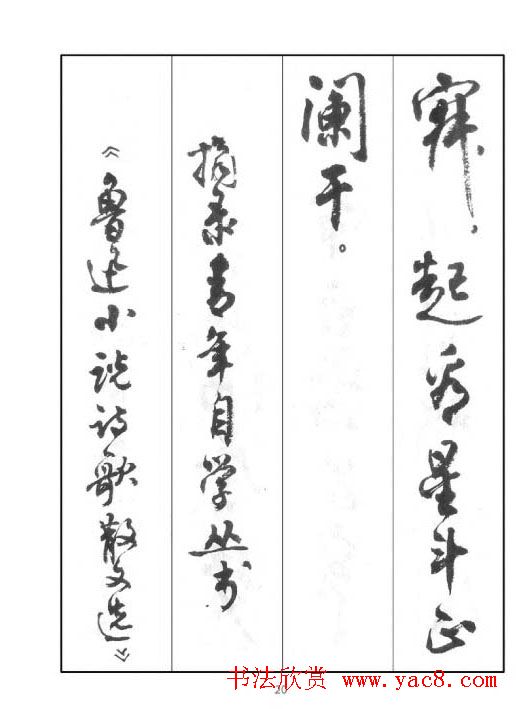 寐，起看星斗正
阑干。
摘录青年自学丛书
《鲁迅小说诗歌散文选》
书法欣赏 www.yac8.com
20